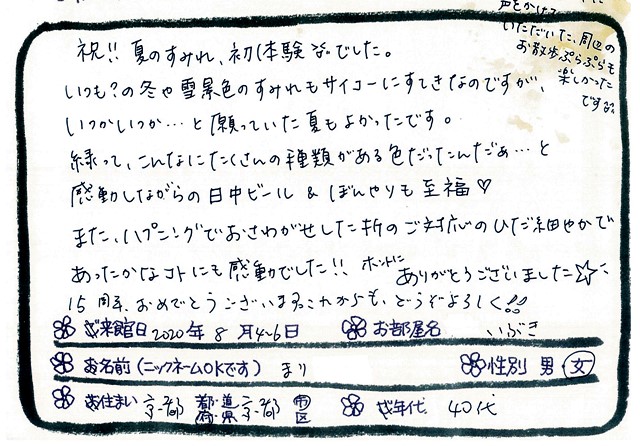 祝!! 夏のすみれ、初体験でした。
いつも?の冬や雪景色のすみれもサイコーにすてきなのですが、
いつかいつか…と願っていた夏もよかったです。
緑って、こんなにたくさんの種類がある色だったんだぁ…と
感動しながらの日中ビール & ぼんやりも至福♡
また、ハプニングでおさわがせした折のご対応のひだ細やかで
あったかなコトにも感動でした!! ホントに ありがとうございました☆
15周年、おめでとうございます。これからも、どうぞよろしく!!
声をかけて
いただいた、周辺の
お散歩ぷらぷらも
楽しかった
です。
ご来館日 2020年 8月4~6日 お部屋名 いぶき
お名前(ニックネームOKです) まり 性別 男・女
お住まい 京都 都・道・府・県 京都 市 区 ご年代 40代